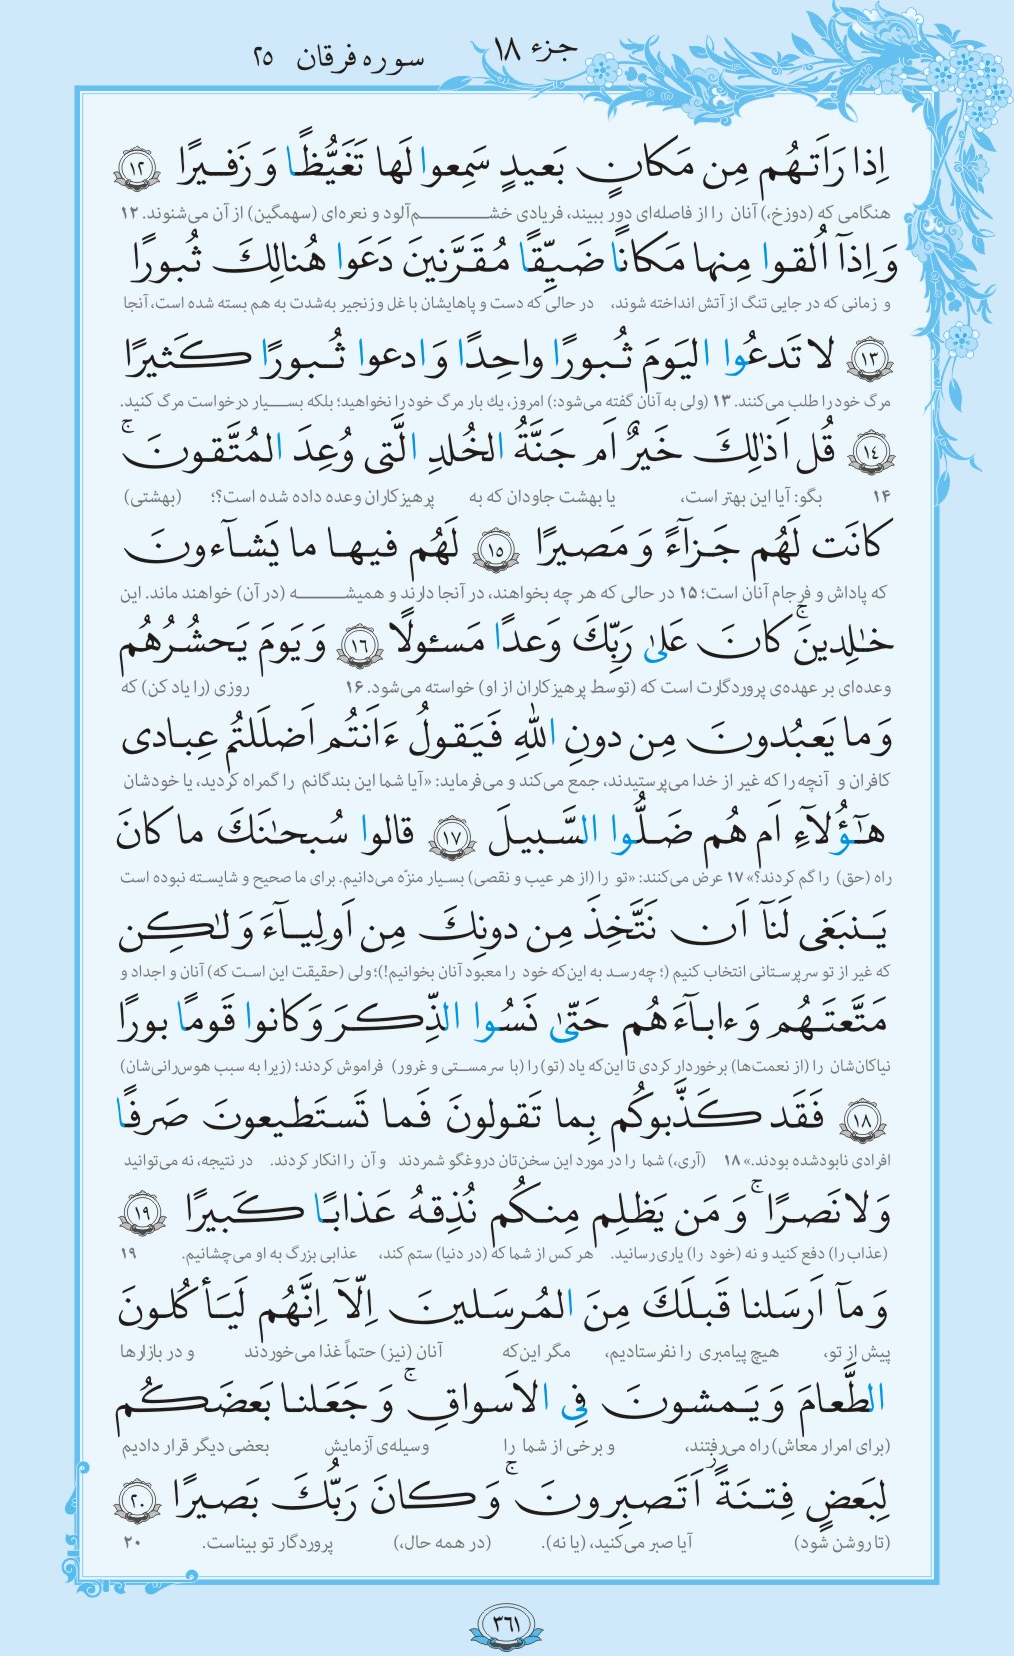 جزء ۱۸
سوره فرقان ۲۵
اِذا رَاَتـهُم مِن مَكانٍ بَعيدٍ سَمِعوا لَها تَغَيُّظًا وَ زَفـيرًا ﴿١٢﴾
هنگامی که (دوزخ،) آنان را از فاصله‌ای دور ببیند، فریادی خشم‌آلود و نعره‌ای (سهمگین) از آن می‌شنوند. ۱۲
وَ اِذآ اُلقوا مِنها مَكانًا ضَيِّقًا مُقَرَّنينَ دَعَوا هُنالِكَ ثُبورًا
و زمانی که در جایی تنگ از آتش انداخته شوند، در حالی که دست و پاهایشان با غل و زنجیر به‌شدت به هم بسته شده است، آنجا
﴿١٣﴾ لا تَدعُوا اليَومَ ثُبورًا واحِدًا وَ ادعوا ثُبورًا كَثيرًا
مرگ خود را طلب می‌کنند. ۱۳ (ولی به آنان گفته می‌شود:) امروز، یك بار مرگ خود را نخواهید؛ بلکه بسیار درخواست مرگ کنید.
﴿١٤﴾ قُل اَذٰلِكَ خَيرٌ اَم جَنَّةُ الخُلدِ الَّتى وُعِدَ المُتَّقونَ ۚ
۱۴ بگو: آیا این بهتر است، یا بهشت جاودان که به پرهیزکاران وعده داده شده است؟؛ (بهشتی)
كانَت لَهُم جَزآءً وَ مَصيرًا ﴿١٥﴾ لَهُم فيها ما يَشآءونَ
که پاداش و فرجام آنان است؛ ۱۵ در حالی که هر چه بخواهند، در آنجا دارند و همیشه (در آن) خواهند ماند. این
خٰلِدينَ ۚ كانَ عَلىٰ رَبِّكَ وَعدًا مَسئولًا ﴿١٦﴾ وَ يَومَ يَحشُرُهُم
وعده‌ای بر عهده‌ی پروردگارت است که (توسط پرهیزکاران از او) خواسته می‌شود. ۱۶ روزی (را یاد کن) که
وَ ما يَعبُدونَ مِن دونِ اللّٰهِ فَيَقولُ ءَاَنتُم اَضلَلتُم عِبادى
کافران و آنچه را که غیر از خدا می‌پرستیدند، جمع می‌کند و می‌فرماید: «آیا شما این بندگانم را گمراه کردید، یا خودشان
هٰٓؤُلآءِ اَم هُم ضَلُّوا السَّبيلَ ﴿١٧﴾ قالوا سُبحٰنَكَ ما كانَ
راه (حق) را گم کردند؟» ۱۷ عرض می‌کنند: «تو را (از هر عیب و نقصی) بسیار منزّه می‌دانیم. برای ما صحیح و شایسته نبوده است
يَنبَغى لَنآ اَن نَتَّخِذَ مِن دونِكَ مِن اَولِيآءَ وَ لٰكِن
که غیر از تو سرپرستانی انتخاب کنیم (؛ چه رسد به این‌که خود را معبود آنان بخوانیم!)؛ ولی (حقیقت این است که) آنان و اجداد و
مَتَّعتَهُم وَ ءابآءَهُم حَتّىٰ نَسُوا الذِّكرَ وَ كانوا قَومًا بورًا
نیاکان‌شان را (از نعمت‌ها) برخوردار کردی تا این‌که یاد (تو) را (با سرمستی و غرور) فراموش کردند؛ (زیرا به سبب هوس‌رانی‌شان)
﴿١٨﴾ فَقَد كَذَّبوكُم بِما تَقولونَ فَما تَستَطيعونَ صَرفًا
افرادی نابودشده بودند.» ۱۸ (آری،) شما را در مورد این سخن‌تان دروغگو شمردند و آن را انکار کردند. در نتیجه، نه می‌توانید
وَلا نَصرًا ۚ وَ مَن يَظلِم مِنكُم نُذِقهُ عَذابًا كَبيرًا ﴿١٩﴾
(عذاب را) دفع کنید و نه (خود را) یاری رسانید. هر کس از شما که (در دنیا) ستم کند، عذابی بزرگ به او می‌چشانیم. ۱۹
وَ مآ اَرسَلنا قَبلَكَ مِنَ المُرسَلينَ اِلّآ اِنَّهُم لَيَأكُلونَ
پیش از تو، هیچ پیامبری را نفرستادیم، مگر این‌که آنان (نیز) حتماً غذا می‌خوردند و در بازارها
الطَّعامَ وَ يَمشونَ فِى الاَسواقِ ۚ وَ جَعَلنا بَعضَكُم
(برای امرار معاش) راه می‌رفتند، و برخی از شما را وسیله‌ی آزمایش بعضی دیگر قرار دادیم
لِبَعضٍ فِتنَةً ۖ اَتَصبِرونَ ۚ وَ كانَ رَبُّكَ بَصيرًا ﴿٢٠﴾
(تا روشن شود) آیا صبر می‌کنید، (یا نه). (در همه حال،) پروردگار تو بیناست. ۲۰
۳۶۱